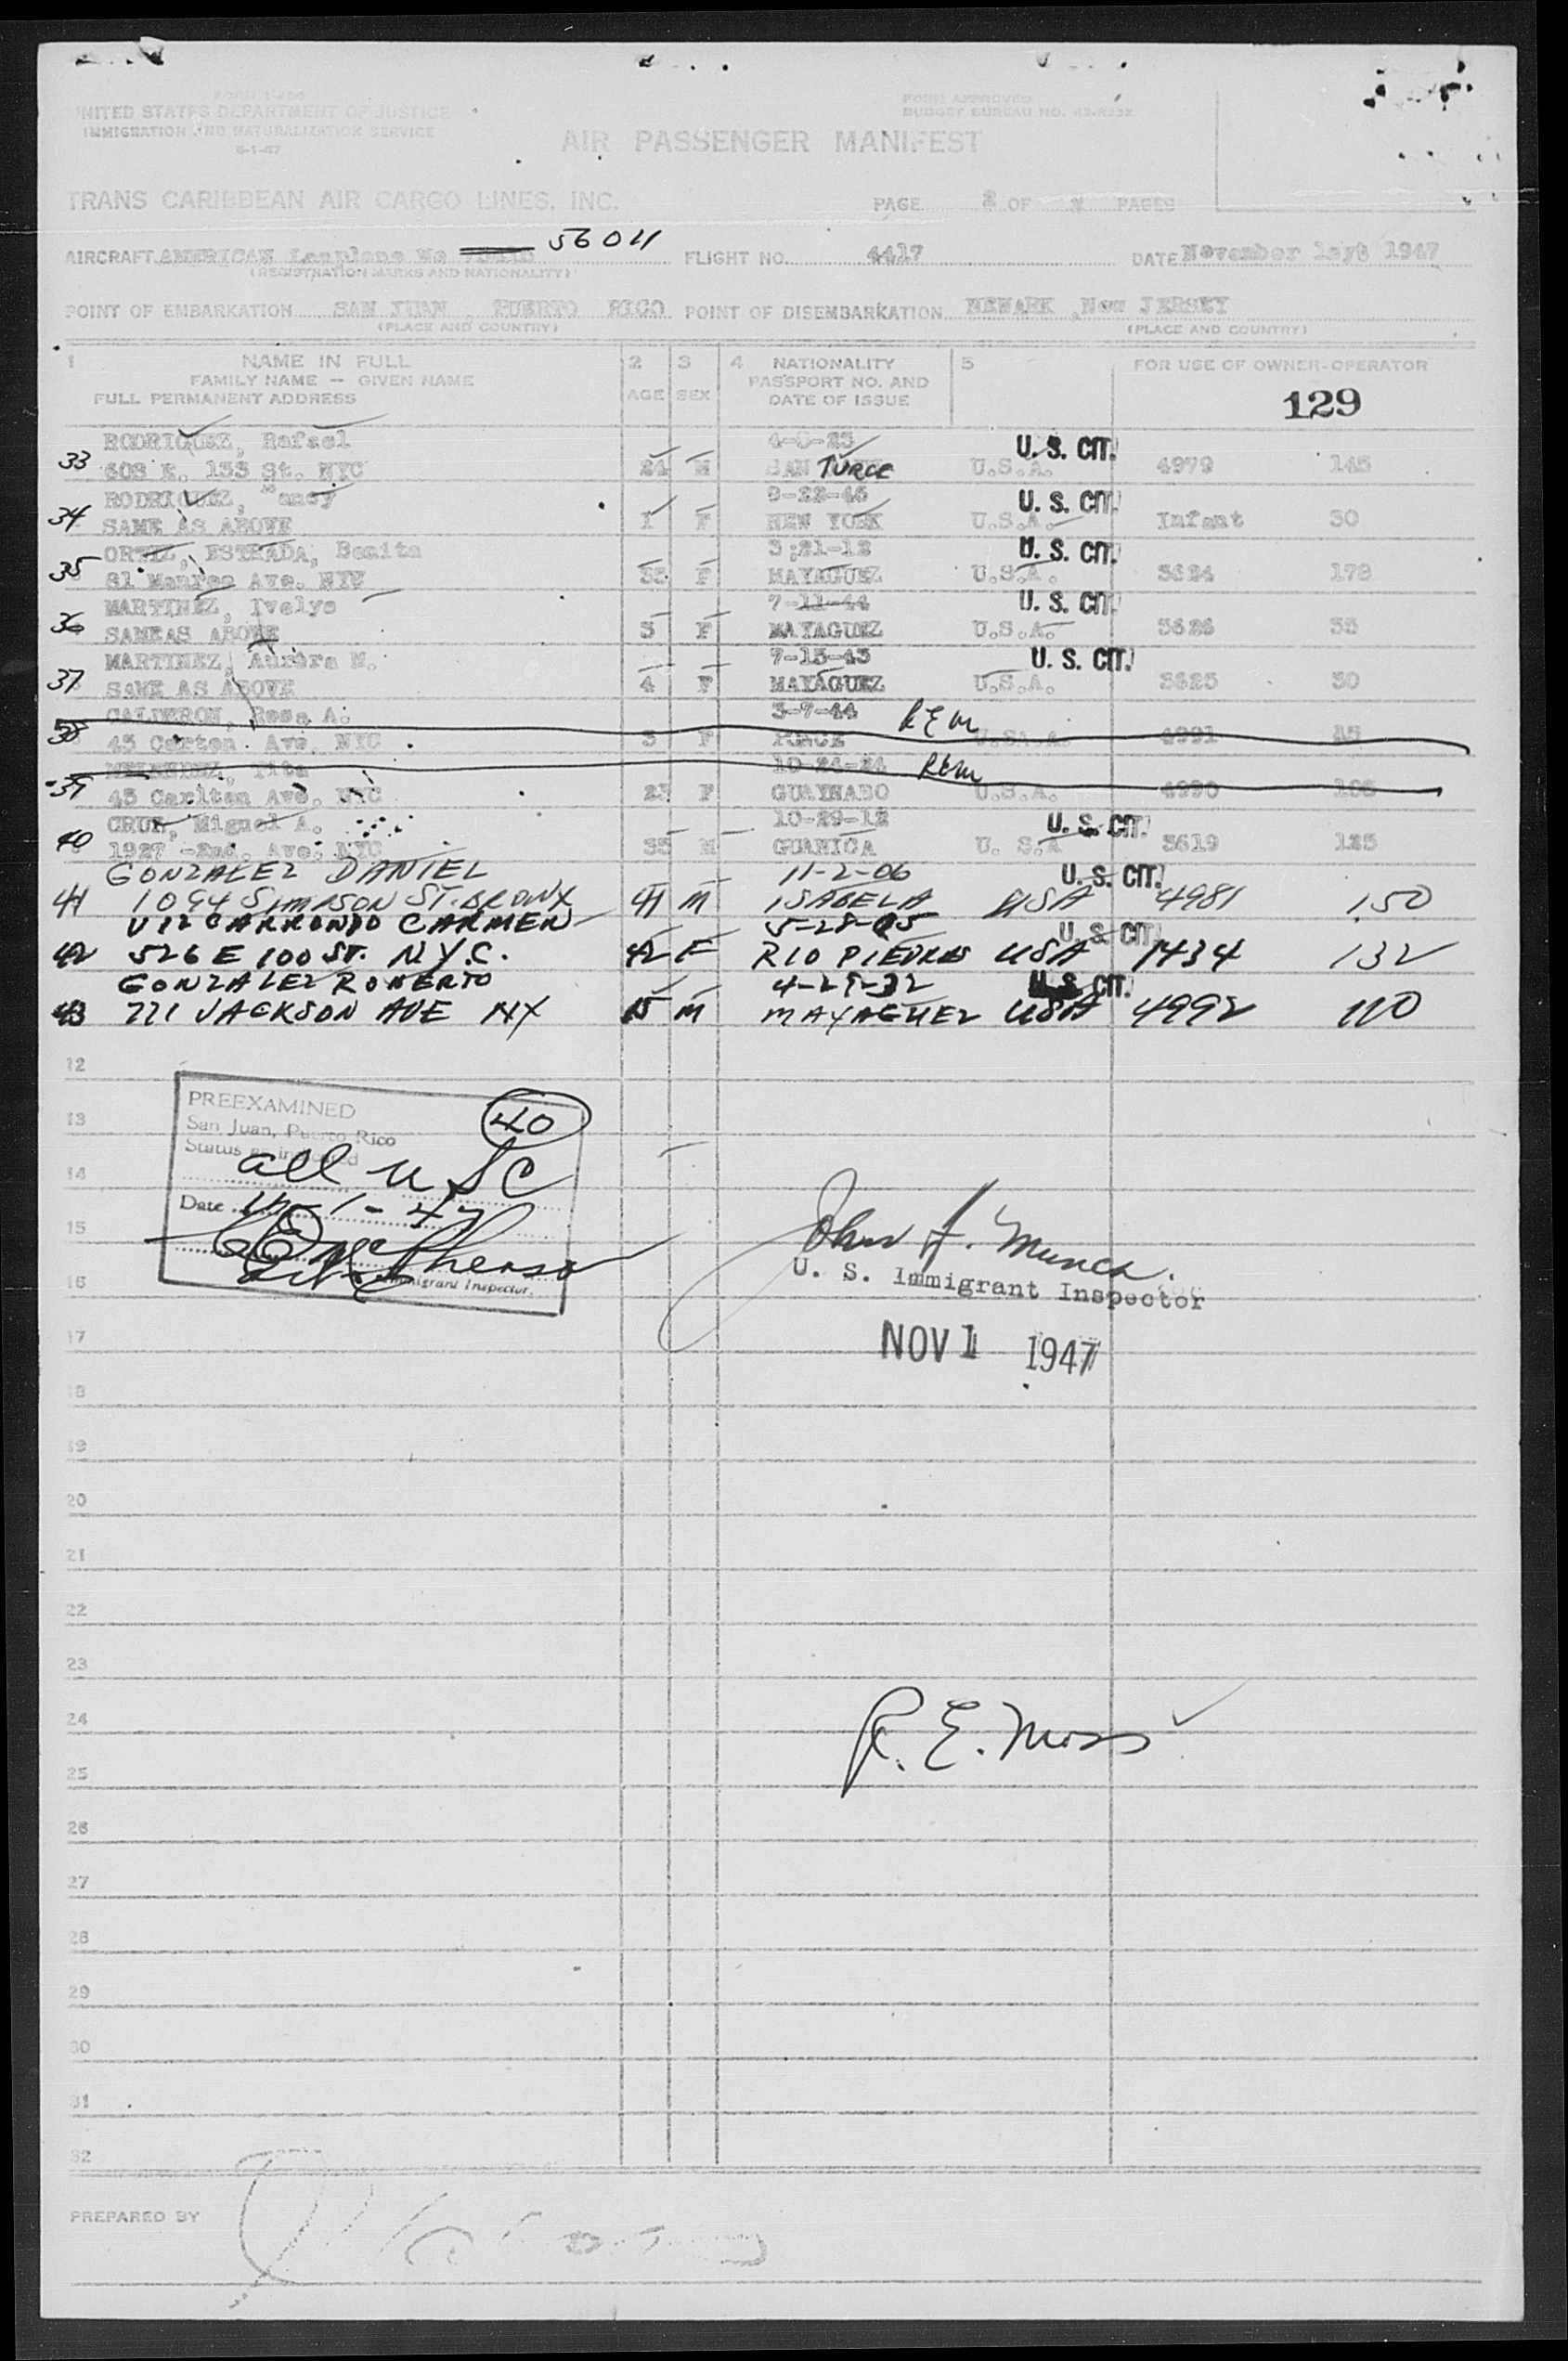 UNITED STATES DEPARTMENT OF JUSTICE
IMMIGRATION AND NATURALIZATION SERVICE
FORM APPROVED
BUDGET BUREAU NO.
AIR PASSENGER MANIFEST
TRANS CARIBBEAN AIR CARGO LINES, INC.
PAGE 2 OF PAGES
AIRCRAFT AMERICAN 56011 FLIGHT NO. 4417 DATE November 1947
(REGISTRATION MARKS AND NATIONALITY)
POINT OF EMBARKATION SAN JUAN, PUERTO RICO POINT OF DISEMBARKATION NEWARK, New JERSEY
(PLACE AND COUNTRY) (PLACE AND COUNTRY)
1 NAME IN FULL 2 3 4 NATIONALITY 5 FOR USE OF OWNER-OPERATOR
FAMILY NAME — GIVEN NAME PASSPORT NO. AND
FULL PERMANENT ADDRESS AGE SEX DATE OF ISSUE 129
RODRIGUEZ, Rafael U.S. CIT.
33 608 E. 153 St. NYC 24 M SAN TURCE U.S.A. 4979 145
RODRIGUEZ, Nancy 9-22-46 U. S. CIT.
34 SAME AS ABOVE 1 F NEW YORK U.S.A. Infant 30
ORTIZ, ESTRADA, Benita 3;21-12 U. S. CIT.
35 81 Ave. NYC 35 F MAYAGUEZ U.S.A. 3624 178
MARTINEZ, Ivelys 7-11-44 U. S. CIT.
36 SAMEAS ABOVE 3 F MAYAGUEZ U.S.A. 3626 35
MARTINEZ, Aurora M. 7-13-43 U. S. CIT.
37 SAME AS ABOVE 4 F MAYAGUEZ U.S.A. 3625 30
CALDERON, Rosa A. 3-7-44 REM
38 45 Carton Ave. NYC 3 F PONCE U.SA.A. 4991
MELENDEZ, Tita 10-24-24 REM
39 45 Carlten Ave, NYC 23 F GUAYNABO U.S.A. 4990
CRUZ, Miguel A. 10-29-12 U. S. CIT.
40 1927 -2nd. Ave. NYC 35 M GUANICA U. S.A 3619 125
GONZALEZ DANIEL 11-2-06 U. S. CIT.
41 1094 SIMPSON ST. BRONX 41 M ISABELA USA 4981 150
CARMEN U. S. CIT.
42 526 E 100 ST. N.Y.C. 42 F RIO PIEDRAS USA 1434 132
GONZALEZ ROBERTO U.S. CIT.
43 771 JACKSON AVE NY 15 M MAYAGUEZ USA 4992 110
12
PREEXAMINED 40
13
San Juan, Puerto Rico
Status as indicated
14 all USC
Date
15
Immigrant Inspector.
John F. Munch.
16 U. S. Immigrant Inspector
17 NOV 1 1947
18
19
20
21
22
23
24
R. E. Moss
25
26
27
28
29
30
31
32
PREPARED BY